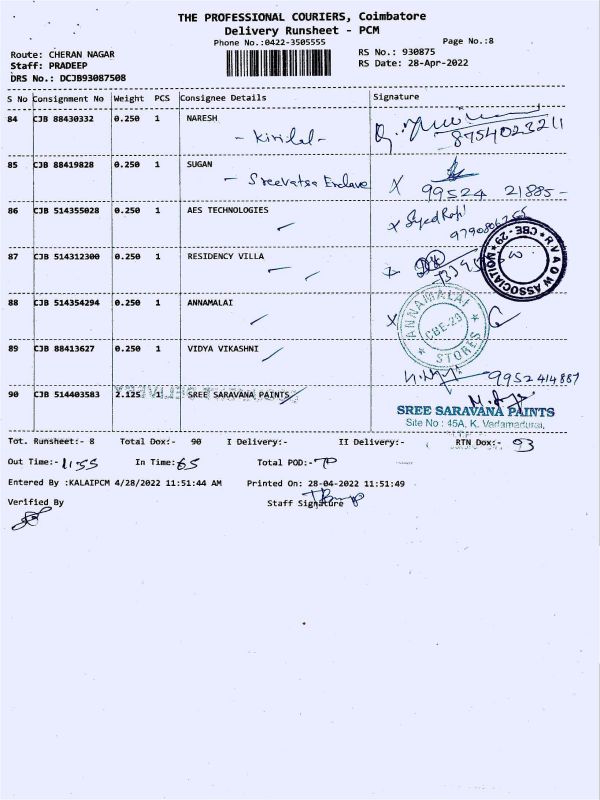 THE PROFESSIONAL COURIERS, Coimbatore
Delivery Runsheet - PCM
Phone No.:0422-3505555
Page No.:8
Route: CHERAN NAGAR
RS No.: 930875
Staff: PRADEEP
RS Date: 28-Apr-2022
DRS No.: DCJB93087508
S No Consignment No Weight PCS Consignee Details Signature
84 CJB 88430332 0.250 1 NARESH
8754023211
85 CJB 88419828 0.250 1 SUGAN
- Sreevatsa Enclave X 99524 21885-
86 CJB 514355028 0.250 1 AES TECHNOLOGIES
87 CJB 514312300 0.250 1 RESIDENCY VILLA
R V A O W ASSOCIATION * CBE - 29 *
88 CJB 514354294 0.250 1 ANNAMALAI X
ANNAMALAI STORES * CBE-29 *
89 CJB 88413627 0.250 1 VIDYA VIKASHNI
9952414887
90 CJB 514403583 2.125 1 SREE SARAVANA PAINTS
SREE SARAVANA PAINTS
Site No : 45A, K. Vadamadurai,
Tot. Runsheet:- 8 Total Dox:- 90 I Delivery:- II Delivery:- RTN Dox:- 93
Out Time:- 11:55 In Time:- 65 Total POD:-
Entered By :KALAIPCM 4/28/2022 11:51:44 AM Printed On: 28-04-2022 11:51:49
Verified By Staff Signature